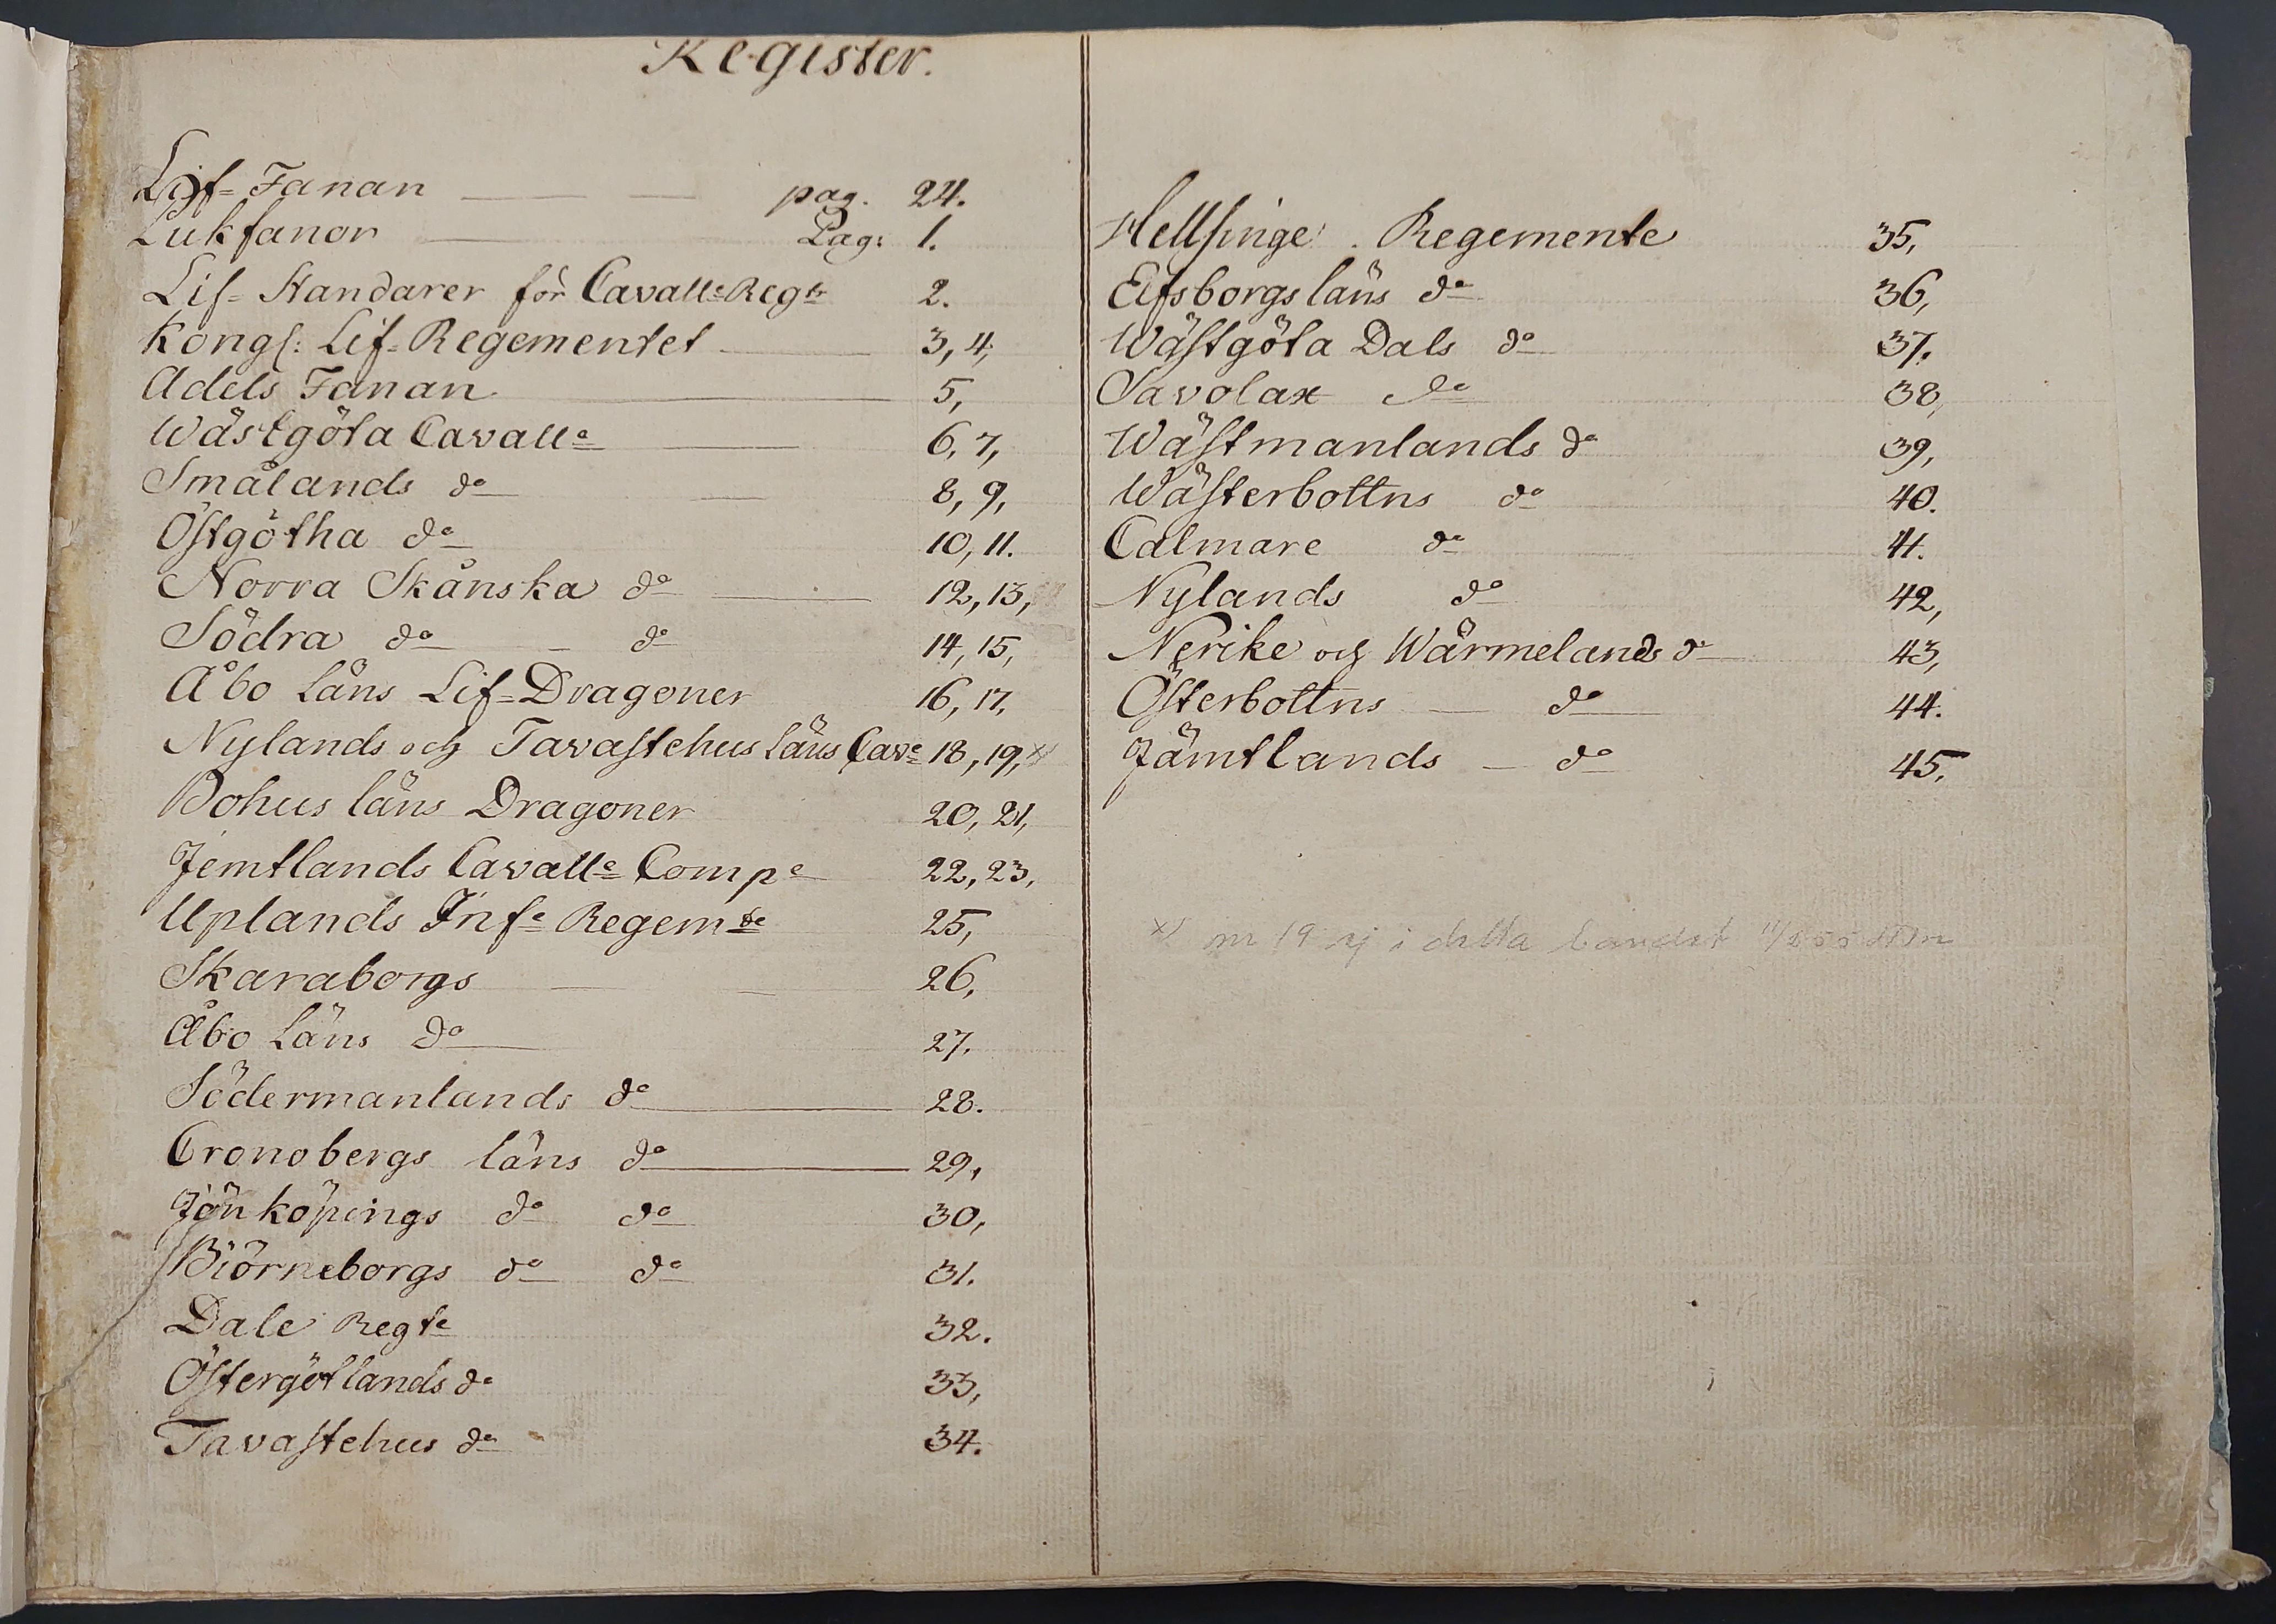 Register.
Lif=Fanan pag. 24.
Lukfanor Pag: 1.
Lif=Standarer för Cavalle Regtr 2.
Kongl: Lif=Regementet 3, 4,
Adels Fanan 5,
Wästgöta Cavalle 6, 7,
Smålands do 8, 9,
Östgötha do 10, 11.
Norra Skånska do 12, 13,
Södra do do 14, 15,
Åbo Läns Lif=Dragoner 16, 17,
Nylands och Tavastehus Läns Cave 18, 19, x)
Bohus läns Dragoner 20, 21,
Jemtlands Cavalle Compe 22, 23,
Uplands Infe Regemte 25,
Skaraborgs 26,
Åbo Läns do 27.
Södermanlands do 28.
Cronobergs läns do 29,
Jönköpings do do 30,
Biörneborgs do do 31.
Dale Regte 32.
Östergötlands do 33,
Tavastehus do 34.
Hellsinge Regemente 35,
Elfsborgs läns do 36,
Wästgöta Dals do 37.
Savolax do 38,
Wästmanlands do 39,
Wästerbottns do 40.
Calmare do 41.
Nylands do 42,
Nerike och Wärmelands do 43,
Österbottns do 44.
Jämtlands do 45,
x) nr 19 ej i detta bandet